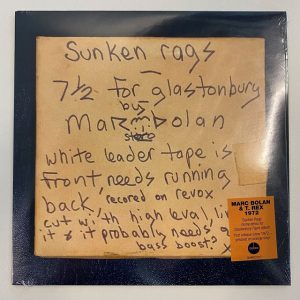 Sunken rags
7½ for glastonbury
by
Marc Bolan
stereo
white leader tape is
front, needs running
back, recored on revox
cut with high leval, li
it & it probably needs a
bass boost?
MARC BOLAN
& T. REX
1972